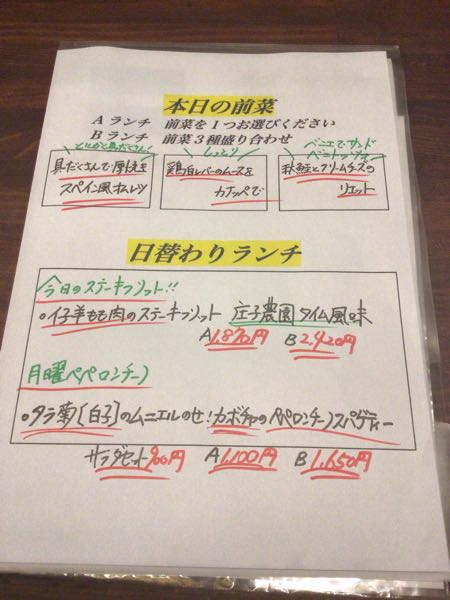 本日の前菜
Aランチ 前菜を1つお選びください
Bランチ 前菜3種盛り合わせ
とにかく具だくさん!
具だくさんで厚焼き
スペイン風オムレツ
しっとり
鶏白レバーのムースを
カナッペで
ベニエでサンド
秋鮭とクリームチーズの
リエット
日替わりランチ
今日のステーキフリット!!
○仔羊もも肉のステーキフリット 庄子農園タイム風味
A1,870円 B2,420円
月曜ペペロンチーノ
○タラ菊[白子]のムニエルのせ!カボチャのペペロンチーノスパゲティー
サラダセット900円 A1,100円 B1,650円